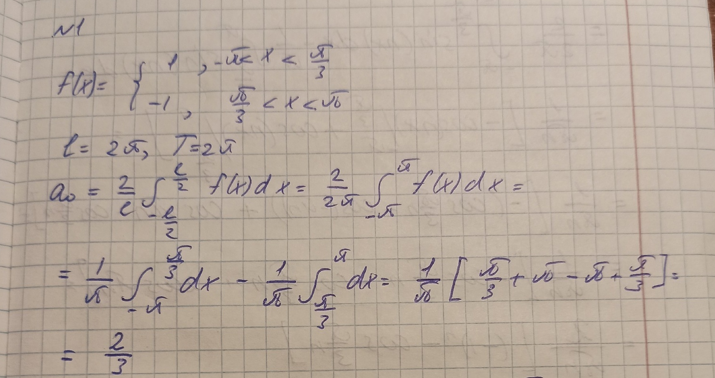 №1
f(x)= { 1, -π< x < π/3
-1, π/3 < x < π
l= 2π, T=2π
a₀ = 2/l ∫_{-l/2}^{l/2} f(x)dx = 2/2π ∫_{-π}^{π} f(x)dx =
= 1/π ∫_{-π}^{π/3} dx - 1/π ∫_{π/3}^{π} dx = 1/π [ π/3 + π - π + π/3 ] =
= 2/3